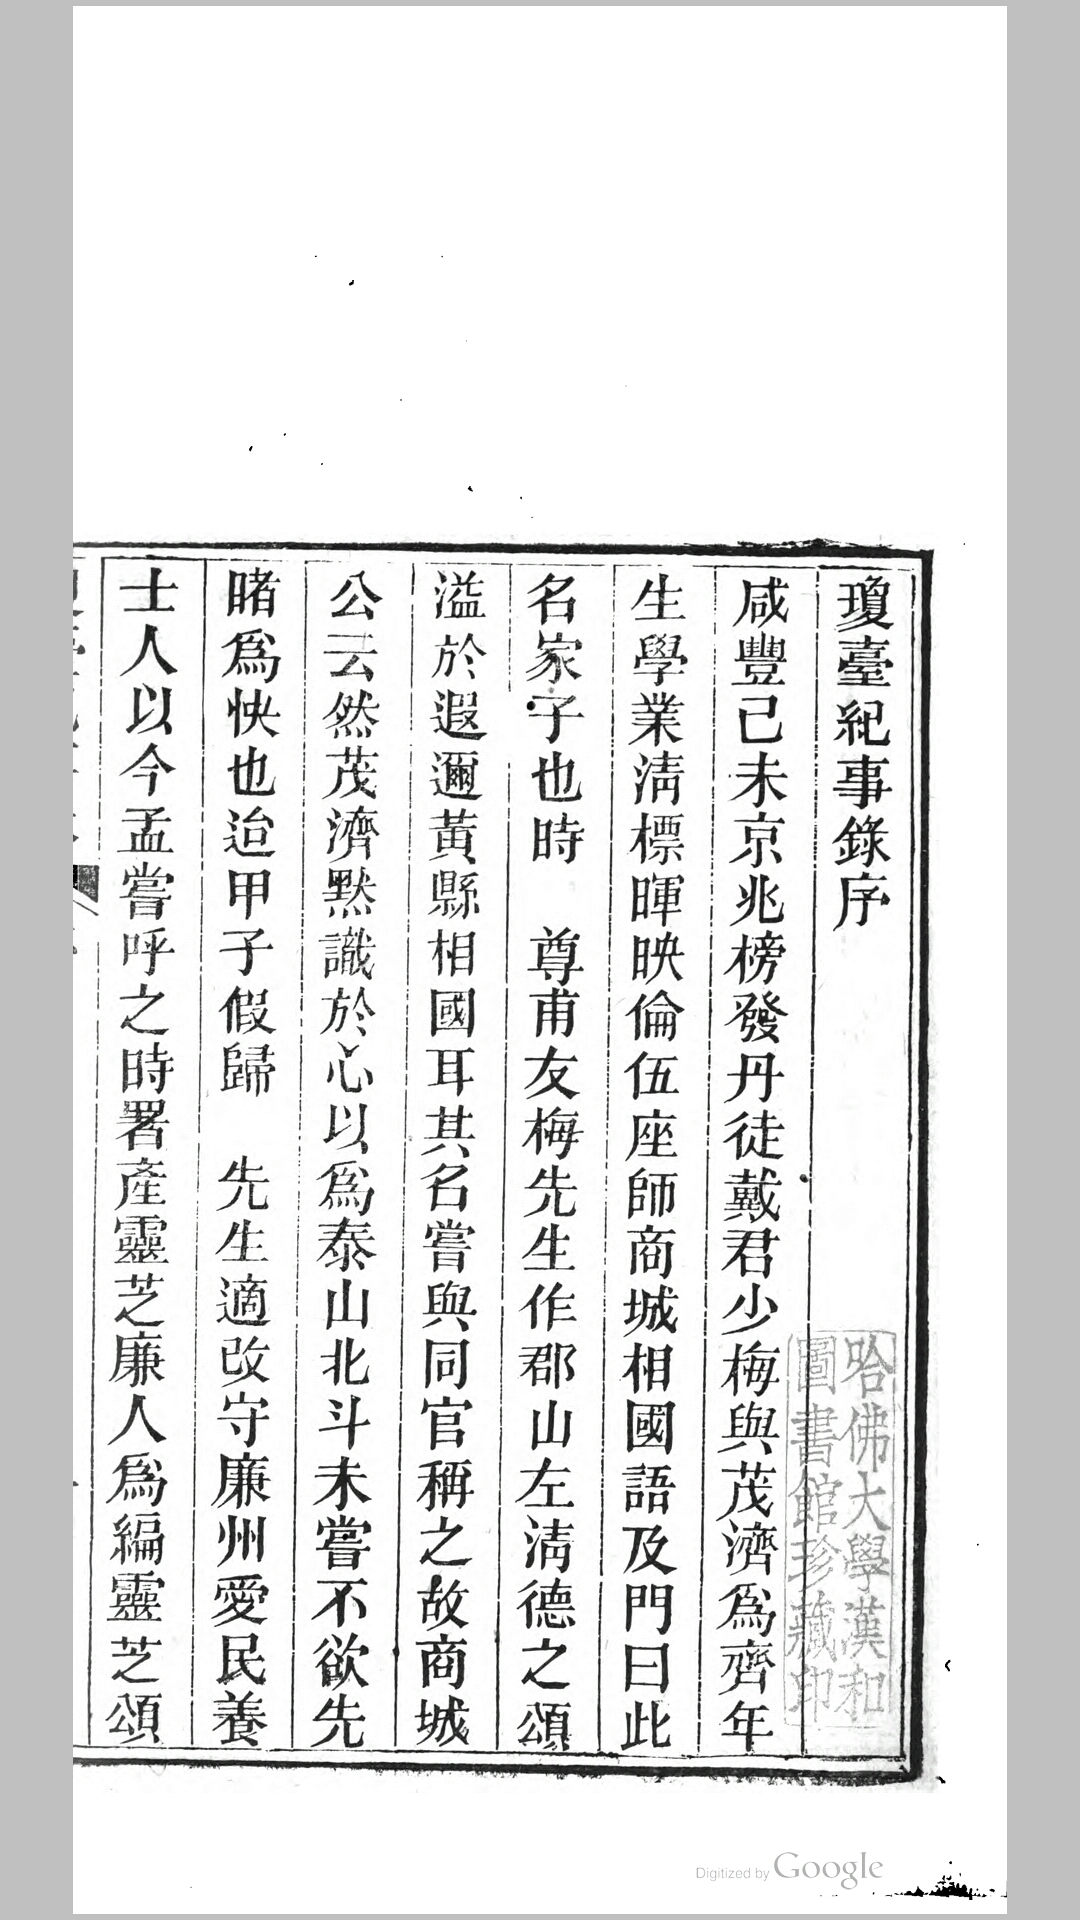 瓊臺紀事錄序
咸豐己未京兆榜發丹徒戴君少梅與茂濟爲齊年
生學業淸標暉映倫伍座師商城相國語及門曰此
名家子也時　尊甫友梅先生作郡山左淸德之頌
溢於遐邇黃縣相國耳其名嘗與同官稱之故商城
公云然茂濟默識於心以爲泰山北斗未嘗不欲先
睹爲快也迨甲子假歸　先生適改守廉州愛民養
士人以今孟嘗呼之時署產靈芝廉人爲編靈芝頌
哈佛大學漢和
圖書館珍藏印
Digitized by Google